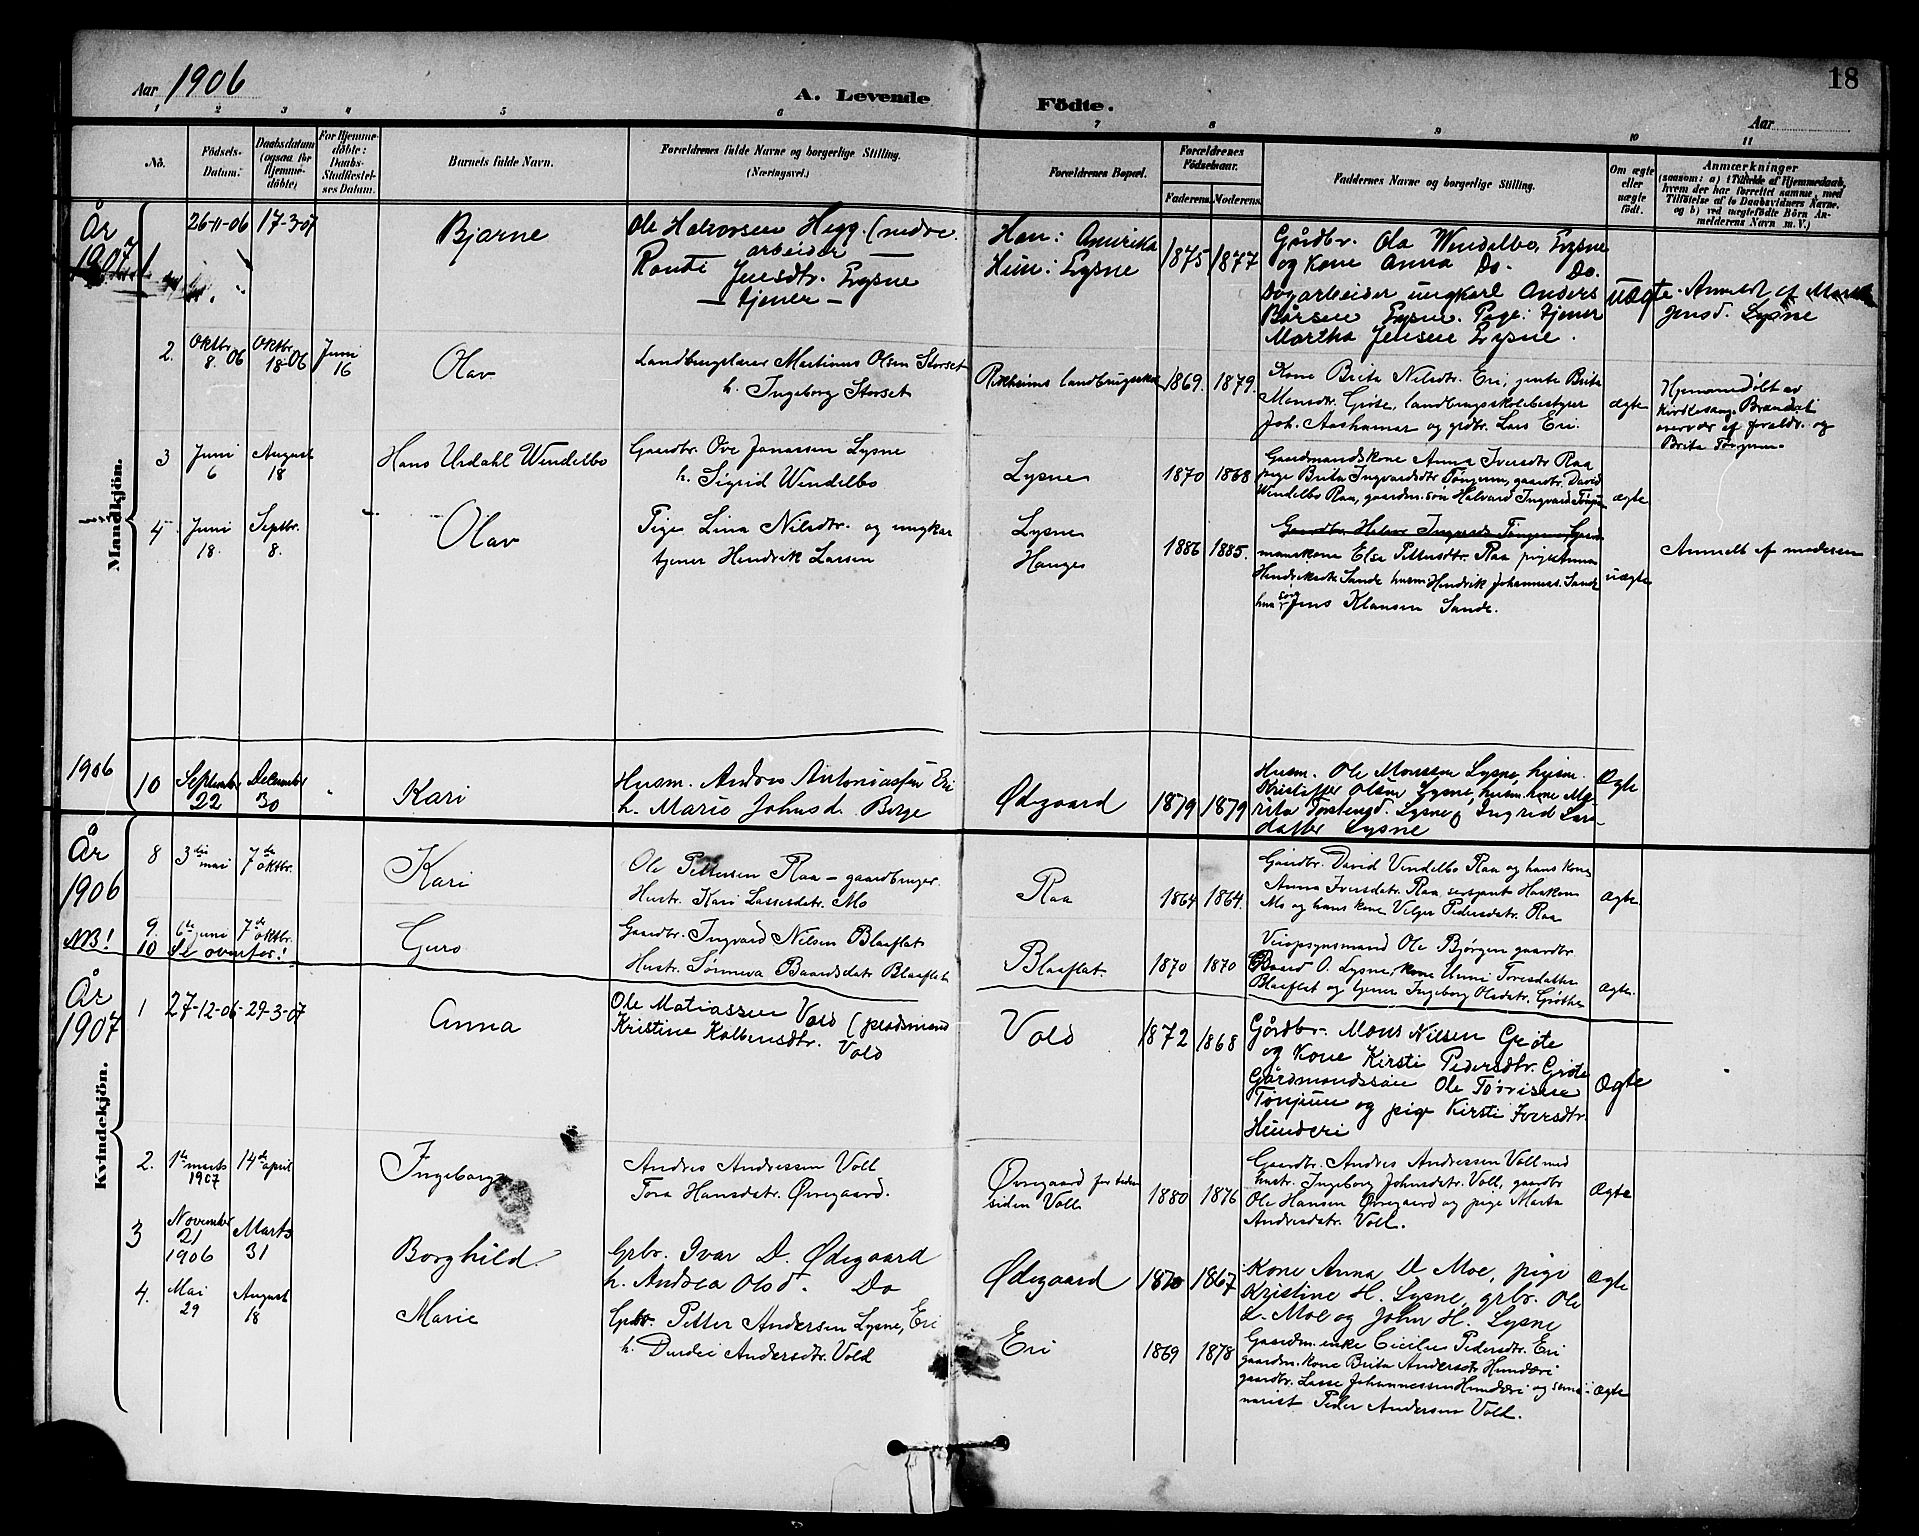 18
Aar 1906
A. Levende Födte.
Aar
1 2 3 4 5 6 7 8 9 10 11
No.
Födsels-
Datum.
Daabsdatum
(ogsaa for
Hjemme-
döbte)
For Hjemme-
döbte:
Daabs-
Stadfæstel-
ses Datum.
Barnets fulde Navn.
Forældrenes fulde Navne og borgerlige Stilling.
(Næringsvei.)
Forældrenes Bopæl.
Forældrenes
Födselsaar.
Faderens. Moderens.
Faddernes Navne og borgerlige Stilling.
Om ægte
eller
uægte
født.
Anmærkninger
(saasom: a) i Tilfælde af Hjemmedaab,
hvem der har forrettet samme, med
Tilføielse af to Daabsvidners Navne.
og b) ved uægtefödte Börn An-
melderens Navn m. V.)
Mandkjön.
År
1907
26-11-06 17-3-07
Bjarne
Ole Halvorsen Hegg (nedre.
arbeider —
Randi Jensdtr. Lysne
— tjener —
Han: Amerika
Hun: Lysne
1875 1877
Gårdbr. Ola Wendelbo, Lysne
og Kone Anna Do. Do.
Dagarbeider ungkarl Anders
Børsen Lysne. Page: tjener
Martha Jensen Lysne.
uægte
Anmeldt af
Jensd. Lysne
2. Oktbr. 8. 06 Oktbr. 18-06 Juni 16
Olav
Landbrugslærer Martinus Olsen Storset
h. Ingeborg Storset
landbrugsskole
1869. 1879.
Kone Brita Nilsdtr. Eri, jente Brita
Monsdtr. Grøte, landbrugsskolebestyrer
Joh. Aashamar og grdbr. Lars Eri.
ægte
Hjemmedøbt av
kirkesang. Brandal
overvær af foreldr. og
Brita
3 Juni 6 August 18
Hans Urdahl Wendelbo
Gaardbr. Ove Jonassen Lysne
h. Sigrid Wendelbo
Lysne
1870 1868
Gaardmandskone Anna Iversdtr Raa
pige Brita Ingvardsdtr Tønjum, gaardbr. David
Wendelbo Raa, gaardm. søn Halvard Ingvards Tønjum
ægte
4. Juni 18. Septbr. 8.
Olav
Pige Lina Nilsdtr. og ungkar
tjener Hendrik Larsen
Lysne
Hauges
1886 1885.
Gaardbr Halvor Ingvards Tønjum, Gaard-
manskone Else Pettersdtr. Raa pige Anna
Hendriksdtr. Sande husm Hendrik Johannes. Sande
husm søn Jens Klausen Sande.
uægte
Anmelt af moderen
1906
10 September 22 December 30
Kari
Husm. Andres Antoniassen Eri
h. Marie Johnsd. Berge
Ødegaard
1879 1879
Husm. Ole Monssen Lysne, husm.
Kristaffer Olsen Lysne, husm. kone Ma-
rita Torstensd. Lysne, Ingrid Lars-
datter Lysne
Ægte
Kvindekjön.
År
1906
8 3die mai 7de oktbr.
Kari
Ole Pettersen Raa — gaardbruger.
Hustr. Kari Lassesdatr. Mo
Raa
1864 1864.
Gaardbr. David Vendelbo Raa og hans kone
Anna Iversdatr. Raa sersjant Haakon
Mo og hans kone Pedersdatr. Raa
ægte
NB!
9. 6te juni 7de oktbr.
10 Se ovenfor!
Guro
Gaardbr. Ingvard Nilsen Blaaflat
Hustr. Sønneva Baardsdatr Blaaflat
Blaaflat.
1870 1870
Veiopsynsmand Ole Bjørgen gaardbr
Baard O. Lysne, kone Unni Toresdatter
Blaaflat og tjener Ingeborg Olsdatr. Grøthe
ægte
År
1907
1 27-12-06 29-3-07
Anna
Ole Matiassen Vold (pladsmand
Kristine Kolbensdtr. Vold
Vold
1872 1868
Gårdbr. Mons Nilsen Grøte
og Kone Kirsti Pedersdtr. Grøte
Gårdmandssøn Ole Torrisen
Tønjum og pige Kirsti Iversdtr.
Hunderi
Ægte
2. 1ste marts 1907 14de april
Ingeborg
Andres Andressen Voll
Tora Hansdatr. Øvregaard.
Øvregaard for tiden
siden Voll
1880 1876
Gaardbr. Andres Andressen Voll med
hustr. Ingeborg Johnsdatr. Voll, gaardbr
Ole Hansen Øvregaard og pige Marta
Andresdatr. Voll.
Ægte
3 November 21 1906 Marts 31
Borghild.
Grbr. Ivar D. Ødegaard
h. Andrea Olsd. Do
Ødegaard
1870 1867
Kone Anna D Moe, pige
Kristine H. Lysne, grbr. Ole
L. Moe og John H. Lysne
Ægte
4. Mai 29 August 18
Marie
Gbr. Petter Andersen Lysne, Eri
h. Durdei Andersdtr. Vold
Eri
1869 1878
Gaardm. enke Cecilie Pedersdtr. Eri
gaardm. kone Brita Andersdtr Hunderi
gaardbr. Lasse Johannessen Hunderi og semi-
narist Peder Andersen Voll.
Ægte